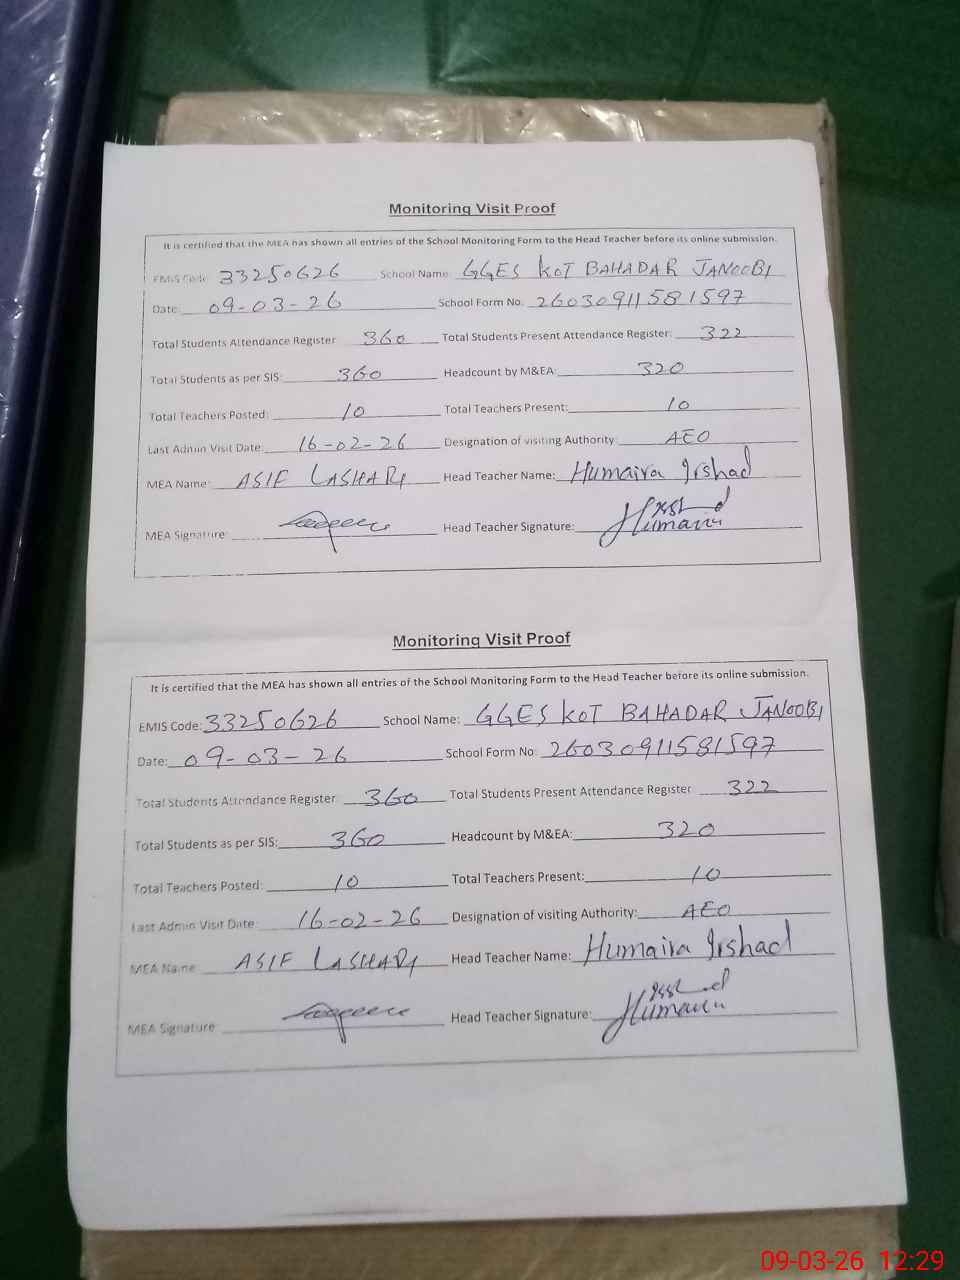 Monitoring Visit Proof
It is certified that the MEA has shown all entries of the School Monitoring Form to the Head Teacher before its online submission.
EMIS Code: 33250626 School Name: GGES KOT BAHADAR JANOOBI
Date: 09-03-26 School Form No: 26030911581597
Total Students Attendance Register 360 Total Students Present Attendance Register: 322
Total Students as per SIS: 360 Headcount by M&EA: 320
Total Teachers Posted: 10 Total Teachers Present: 10
Last Admin Visit Date: 16-02-26 Designation of visiting Authority: AEO
MEA Name: ASIF LASHARI Head Teacher Name: Humaira Irshad
MEA Signature: Head Teacher Signature: Humaira
Monitoring Visit Proof
It is certified that the MEA has shown all entries of the School Monitoring Form to the Head Teacher before its online submission.
EMIS Code: 33250626 School Name: GGES KOT BAHADAR JANOOBI
Date: 09-03-26 School Form No: 26030911581597
Total Students Attendance Register: 360 Total Students Present Attendance Register 322
Total Students as per SIS: 360 Headcount by M&EA: 320
Total Teachers Posted: 10 Total Teachers Present: 10
Last Admin Visit Date: 16-02-26 Designation of visiting Authority: AEO
MEA Name ASIF LASHARI Head Teacher Name: Humaira Irshad
MEA Signature Head Teacher Signature: Humaira
09-03-26 12:29